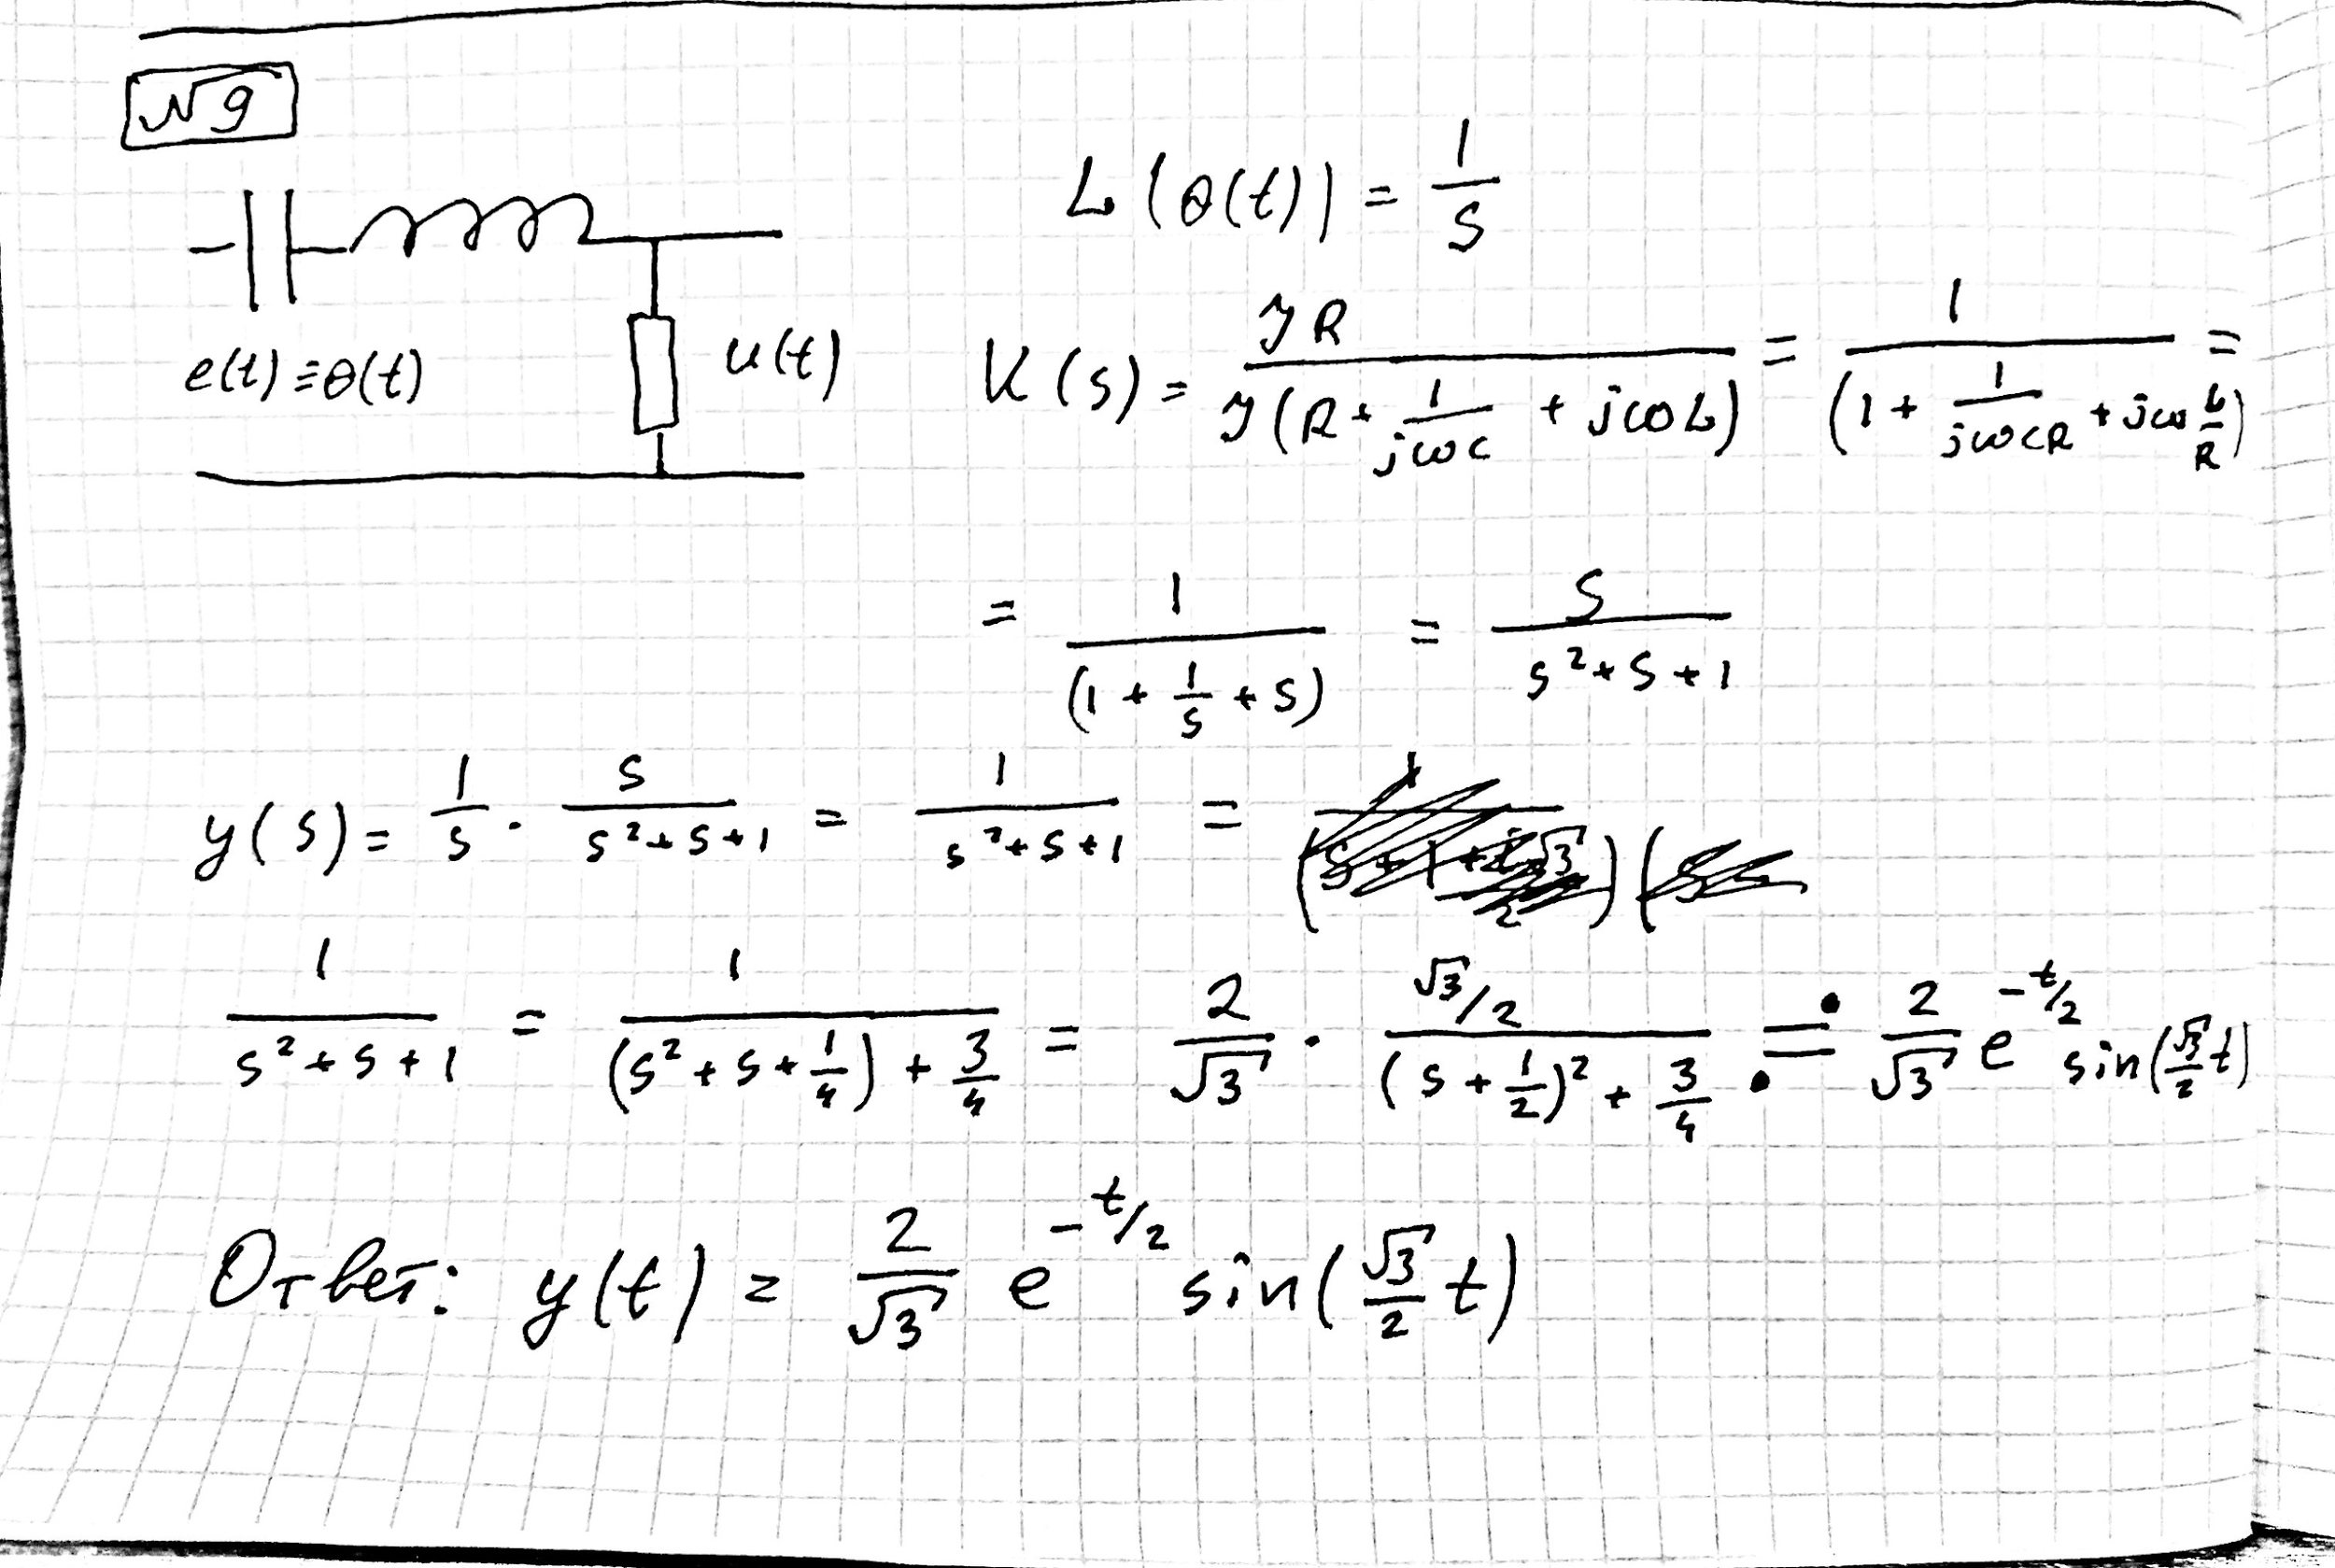 № 9
L(θ(t)) = 1/s
e(t) ≡ θ(t) u(t)
K(s) = JR / J(R + 1/jωC + jωL) = 1 / (1 + 1/jωCR + jω L/R) =
= 1 / (1 + 1/s + s) = s / s² + s + 1
y(s) = 1/s · s / s² + s + 1 = 1 / s² + s + 1 =
1 / s² + s + 1 = 1 / (s² + s + 1/4) + 3/4 = 2/√3 · √3/2 / (s + 1/2)² + 3/4 ≓ 2/√3 e^(-t/2) sin(√3/2 t)
Ответ: y(t) = 2/√3 e^(-t/2) sin(√3/2 t)